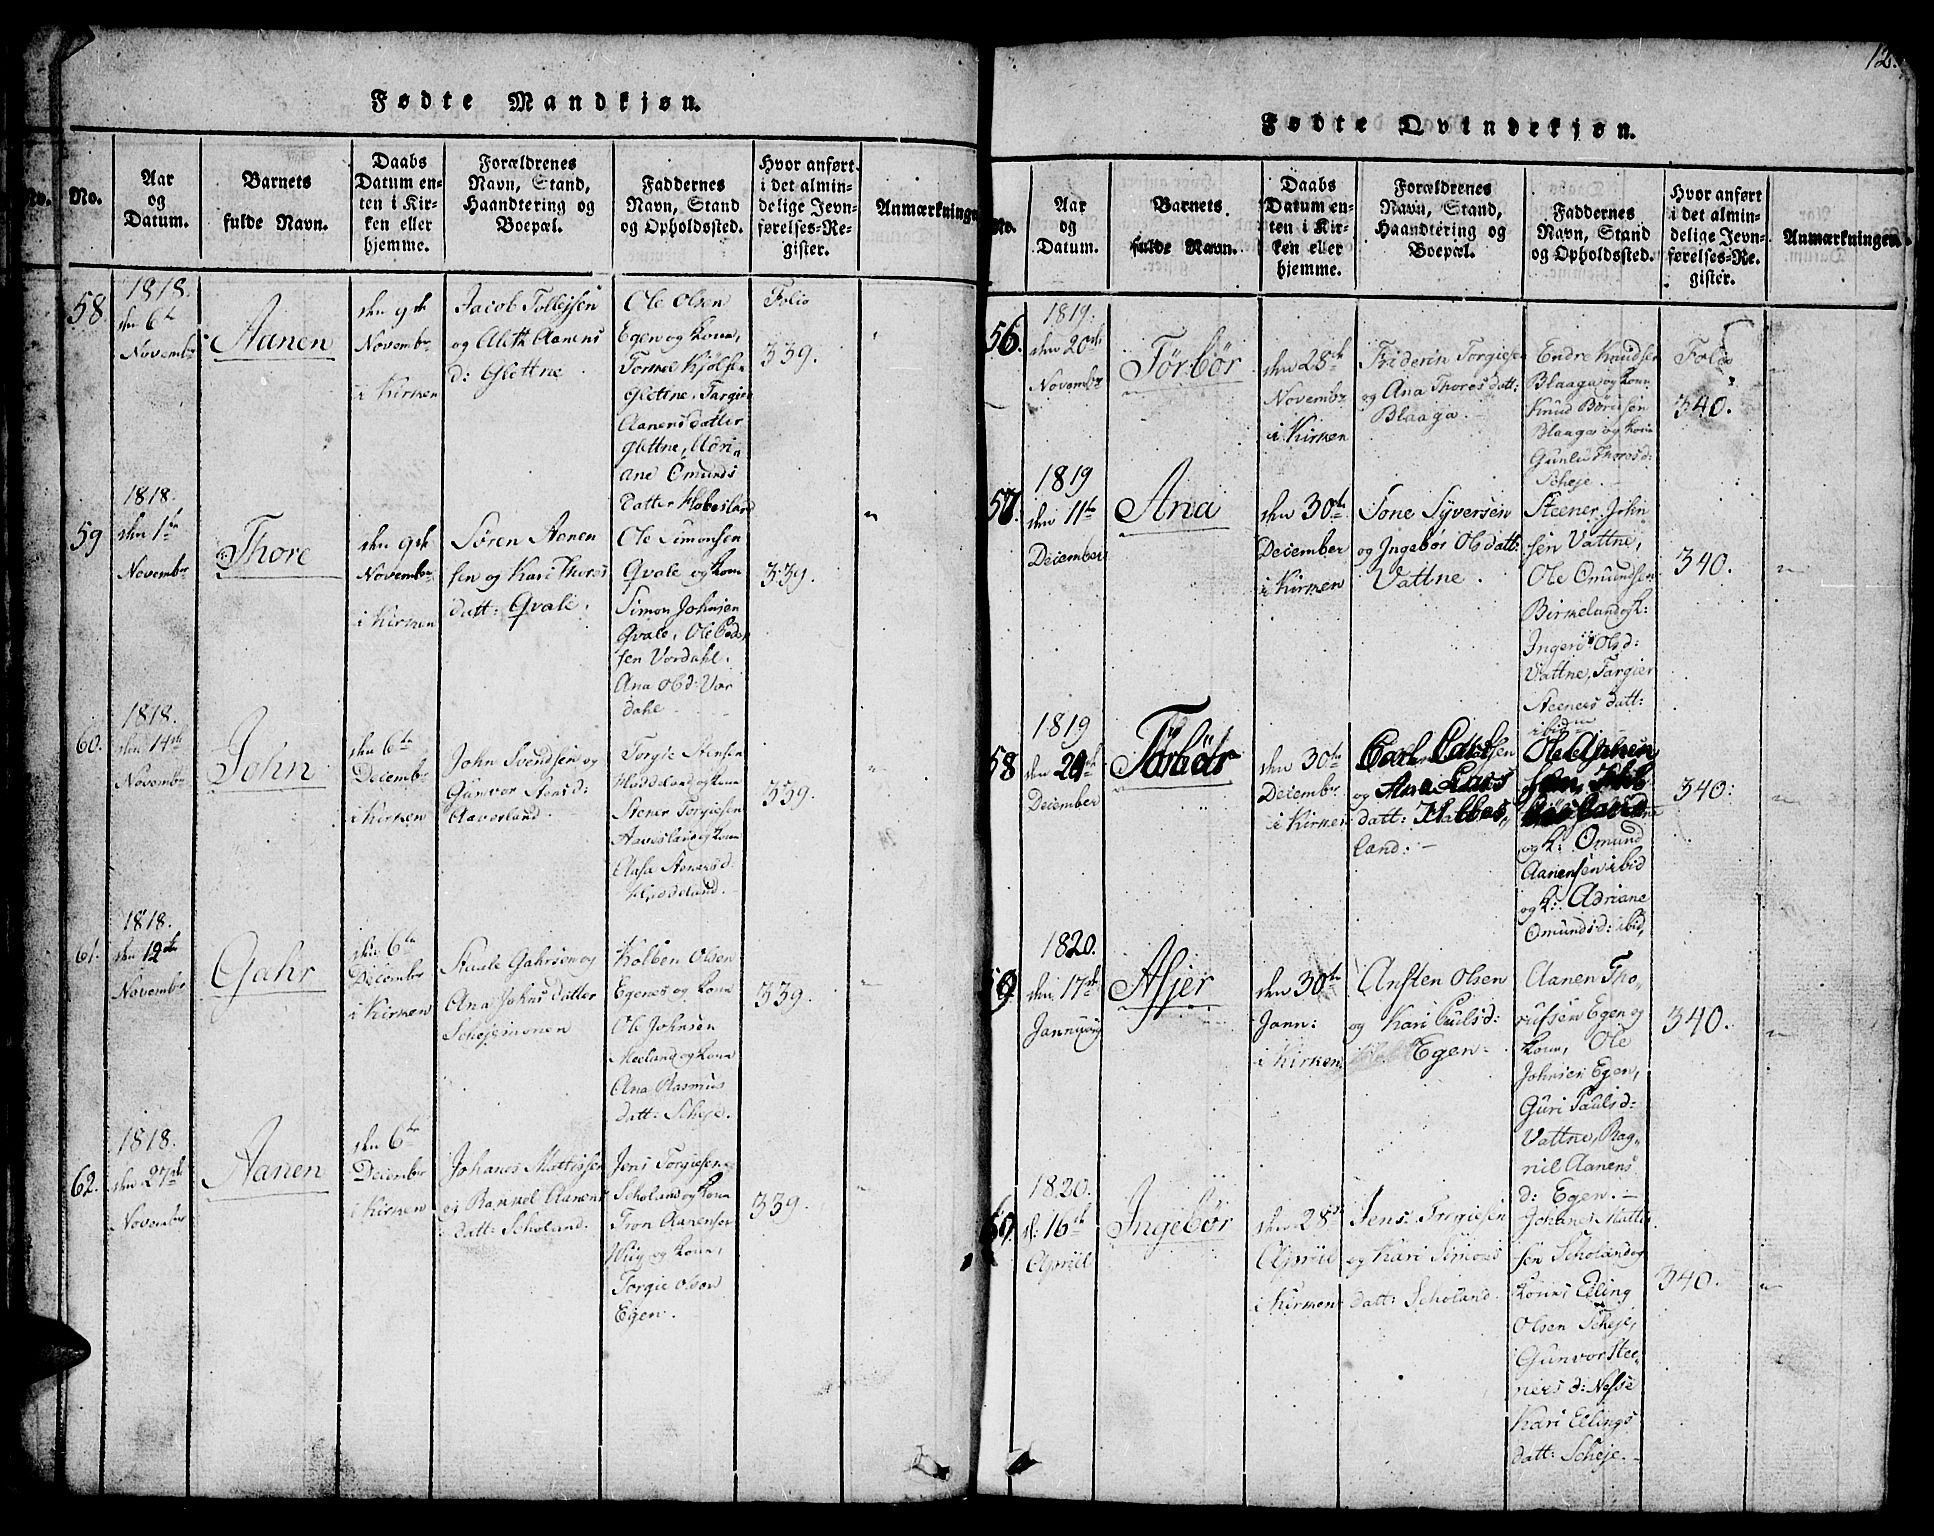 Fødte Mandkjøn.
No.
No.
Aar
og
Datum.
Barnets
fulde Navn.
Daabs
Datum en-
ten i Kir-
ken eller
hjemme.
Forældrenes
Navn, Stand,
Haandtering og
Boepæl.
Faddernes
Navn, Stand
og Opholdssted.
Hvor anført
i det almin-
delige Jevn-
førelses-Re-
gister.
Anmærkninger
58.
1818.
den 6te
Novembr
Aanen
den 9de
Novembr
i Kirken
Jacob Tollejsen
og Aleth Aanens
d: Glettne
Ole Olsen
Egen og Kone,
Tormel Kjølsen
Glettne, Targier
Aanens datter
Glettne,
ane Omunds
datter
Folio
339.
59
1818.
den 1te
Novembr
Thore
den 9de
Novembr
i Kirken
Søren Aanen
sen og Kari Thores
datt: Qvale.
Ole Simonsen
Qvale og Kone
Simon Johnsen
Qvale, Ole Peder
sen Vordahl.
Ana Olsd: Vor
dahl
339.
60.
1818.
den 14de
Novembr
John
den 6te
Decembr
i Kirken
John Svendsen og
Gunvor Aensd:
Haverland.
Torgie Stensen
Høddeland og Kone
Stener Torgiesen
og Kone
Aasa Stenersd.
Høddeland.
339.
61.
1818.
den 12te
Novembr
Gahr
den 6te
Decembr
i Kirken
Staale Gahrsen og
Ana Johns datter
Schejemonen
Kolben Olsen
Egenes og Kone
Ole Johnsen
Meeland og Kone
Ana Rasmus
datt: Scheje.
339.
62.
1818.
den 27de
Novembr
Aanen
den 6te
Decembr
i Kirken
Johanes Mattissen
og Rannel Aanens
datt: Scholand.
Jens Torgiesen
Scholand og Kone
Tron Aanensen
og Kone,
Torgie Olsen
Egen.
339.
12.
Fødte Qvindekjøn.
No.
Aar
og
Datum.
Barnets
fulde Navn.
Daabs
Datum en-
ten i Kir-
ken eller
hjemme.
Forældrenes
Navn, Stand,
Haandtering og
Boepæl.
Faddernes
Navn, Stand
og Opholdssted.
Hvor anført
i det almin-
delige Jevn-
førelses-Re-
gister.
Anmærkninger.
56.
1819.
den 20de
Novembr
Tørbør
den 28de
Novembr
i Kirken
Friderin Torgiesen
og Ana Thores datt:
Blaaga.
Endre Knudsen
Blaaga og Kone
Knud Børiesen
Blaaga og Kone
Gunlu Thoresd:
Scheje.
Folio
340.
57.
1819
den 11te
December
Ana
den 30te
December
i Kirken
Tone Syversen
og Ingebør Ols datt:
Vattne.
Steener John
sen Vattne,
Ole Omundsen
Birkeland og K:
Ingeri Olsd:
Vattne, Targier
Steeners datt:
ibidm
340.
58
1819
den 29de
December
Tørbør
den 30te
Decembr.
i Kirken
Carl Larsen
og Ane Lars
datt: Habbes
land:
Ole Aanen
sen,
og K: Omund
Aanensen ibid
og K: Adriane
Omundsd: ibid,
340:
59
1820.
den 17de
Januari
Asjer
den 30te
Jann:
i Kirken
Ansten Olsen
og Kari Paulsd:
Egen.
Aanen Tho-
rufsen Egen og
Kone, Ole
Johnsen Egen,
Guri Paulsd:
Vattne, Rag-
nil Aanens
d: Egen.
340.
60.
1820.
d: 16de
Apriil
Ingebør
den 28de
Apriil
i Kirken
Jens Torgiesen
og Kari Simons
datt: Scholand.
Johanes Matti
sen Scholand og
Kone, Elling
Olsen Scheje,
Gunvor Stee-
ners d: Nesse
Kari Ellings
datt: Scheje.
340.